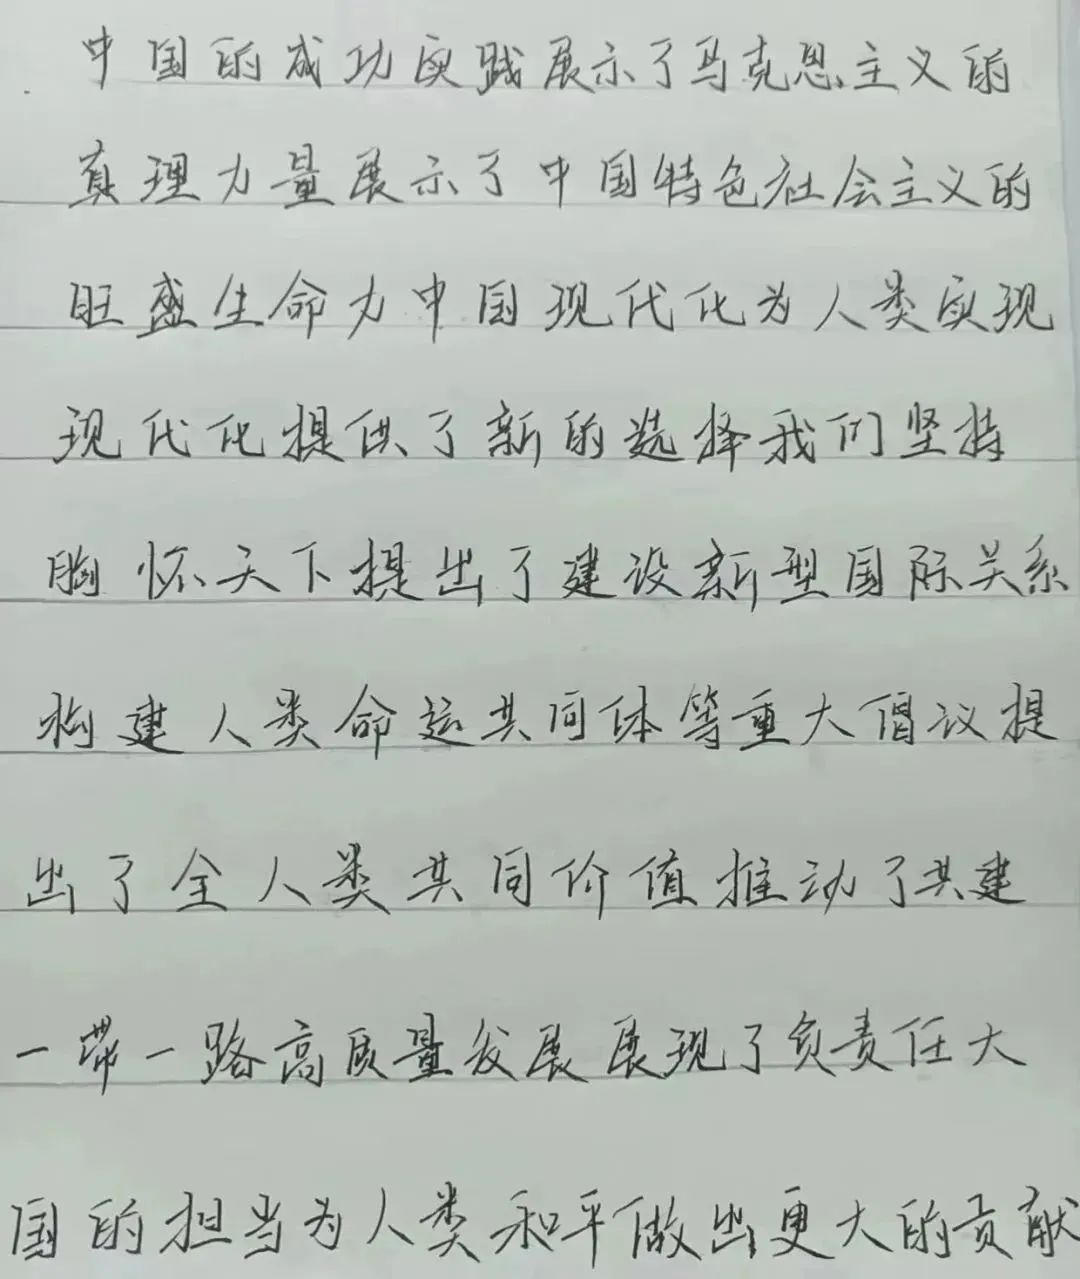 中国的成功实践展示了马克思主义的
真理力量展示了中国特色社会主义的
旺盛生命力中国现代化为人类实现
现代化提供了新的选择我们坚持
胸怀天下提出了建设新型国际关系
构建人类命运共同体等重大倡议提
出了全人类共同价值推动了共建
一带一路高质量发展展现了负责任大
国的担当为人类和平做出更大的贡献